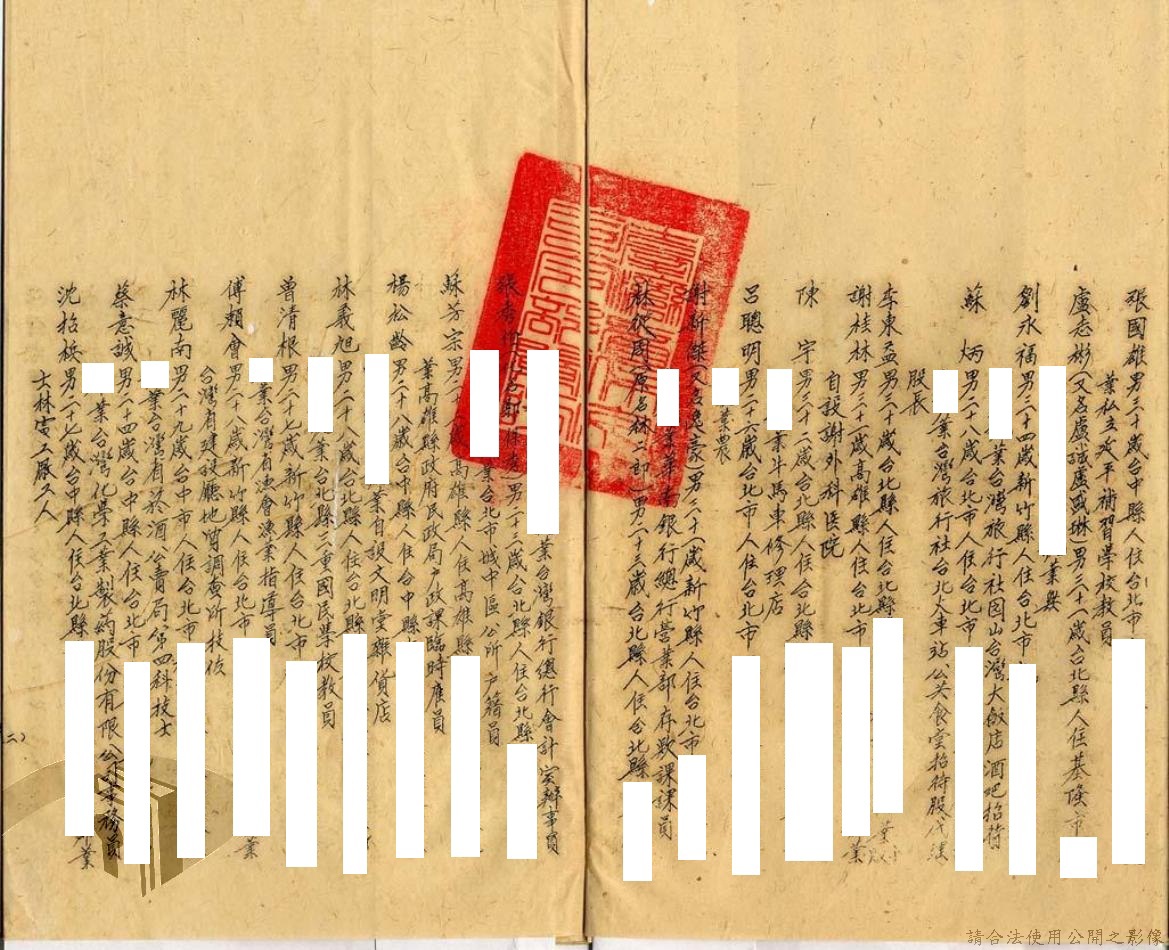 張國雄男三十歲台中縣人住台北市
業私立延平補習學校教員
盧志彬(又名盧誠盧盛琳)男三十一歲台北縣人住基隆市
業
劉永福男三十四歲新竹縣人住台北市
業台灣旅行社圓山台灣大飯店酒吧招待
蘇 炳男二十八歲台北市人住台北市
業台灣旅行社台北火車站公共食堂招待股代
股長
李東益男三十歲台北縣人住台北縣
業
謝桂林男三十一歲高雄縣人住台北市
業
自設謝外科医院
陳 宇男三十二歲台北縣人住台北縣
業牛馬車修理店
呂聰明男二十六歲台北市人住台北市
業農
謝新傑(又名 豪)男二十一歲新竹縣人住台北市
業華南銀行總行營業部存款課課員
林從周(原名林二郎)男二十三歲台北縣人住台北縣
業台灣銀行總行會計室辦事員
張 男二十三歲台北縣人住台北縣
業台北市城中區公所戶籍員
蘇芳宗男二十 歲高雄縣人住高雄縣
業高雄縣政府民政局戶政課臨時雇員
楊松齡男二十 歲台中縣人住台中縣
業自設文明堂雜貨店
林義旭男二十 歲台北縣人住台北縣
業台北縣三重國民學校教員
曾清根男二十七歲新竹縣人住台北市
業台灣省漁會漁業指導員
傅賴會男二十歲新竹縣人住台北市
業
台灣省建設廳地質調查所技佐
林麗南男二十九歲台中市人住台北市
業台灣省菸酒公賣局第四科技士
蔡意誠男二十四歲台中縣人住台北市
業台灣化學工業製藥股份有限公司業務員
沈招 男二十七歲台中縣人住台北縣
業
士林電工廠工人
二)
請合法使用公開之影像